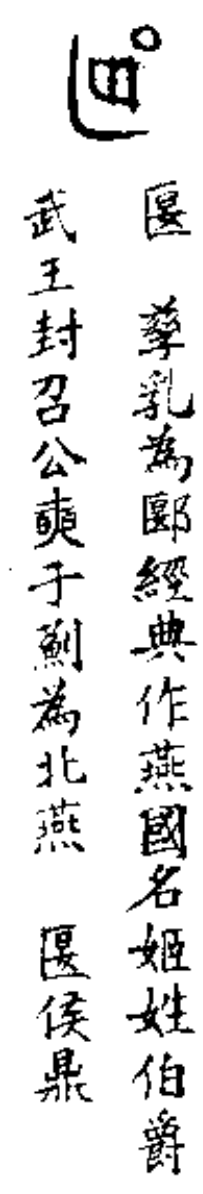 匽 孳乳為郾經典作燕國名姬姓伯爵
武王封召公奭于薊為北燕 匽侯鼎